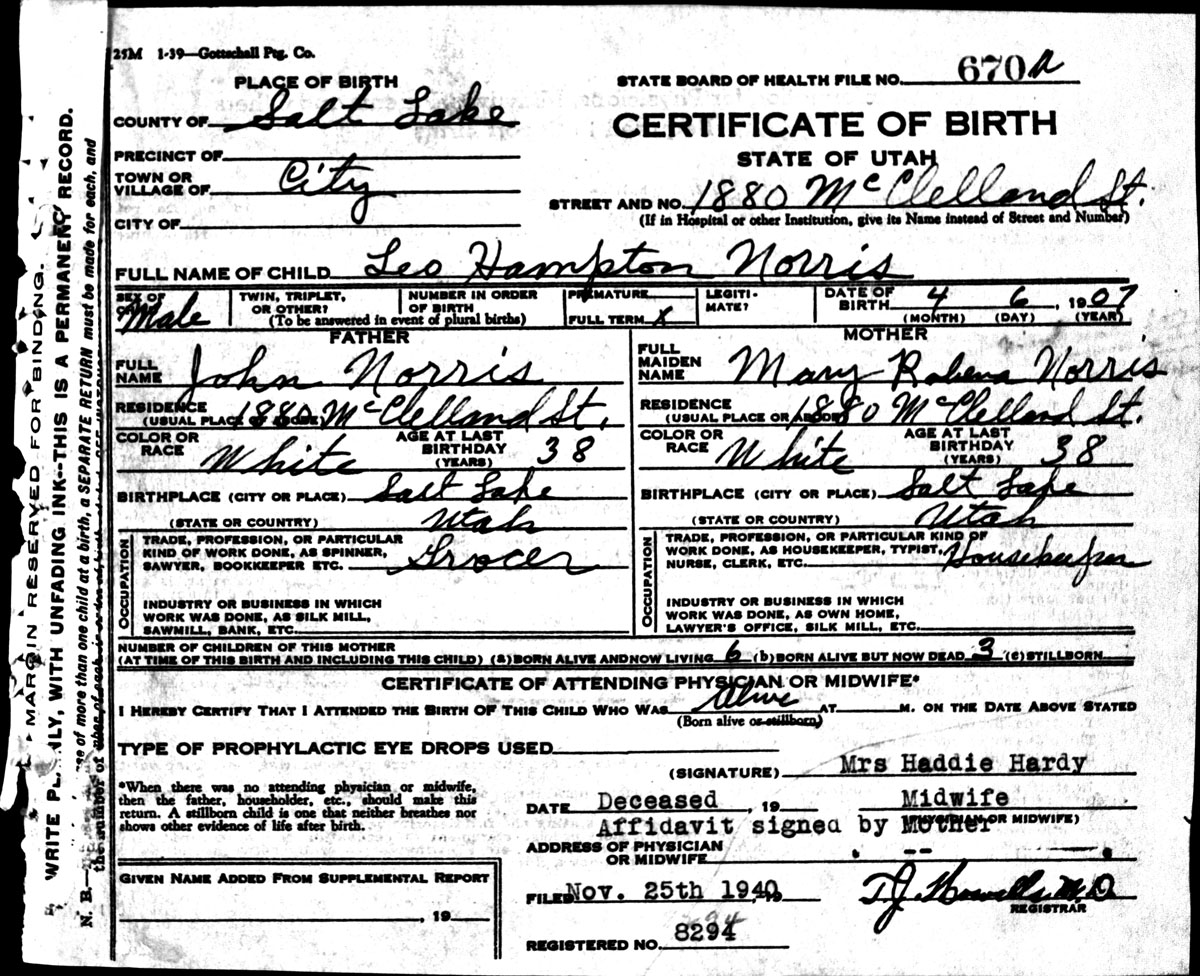 25M 1-39—Gottschall Ptg. Co.
PLACE OF BIRTH
STATE BOARD OF HEALTH FILE NO. 670a
COUNTY OF Salt Lake
CERTIFICATE OF BIRTH
PRECINCT OF
STATE OF UTAH
TOWN OR VILLAGE OF City
STREET AND NO. 1880 McClelland St.
(If in Hospital or other Institution, give its Name instead of Street and Number)
CITY OF
FULL NAME OF CHILD Leo Hampton Norris
SEX OF Male
TWIN, TRIPLET, OR OTHER?
NUMBER IN ORDER OF BIRTH
(To be answered in event of plural births)
PREMATURE
FULL TERM X
LEGITI-MATE?
DATE OF BIRTH 4 6, 1907
(MONTH) (DAY) (YEAR)
FATHER
FULL NAME John Norris
RESIDENCE 1880 McClelland St.
(USUAL PLACE OF ABODE)
COLOR OR RACE White
AGE AT LAST BIRTHDAY (YEARS) 38
BIRTHPLACE (CITY OR PLACE) Salt Lake
(STATE OR COUNTRY) Utah
OCCUPATION
TRADE, PROFESSION, OR PARTICULAR
KIND OF WORK DONE, AS SPINNER,
SAWYER, BOOKKEEPER ETC. Grocer
INDUSTRY OR BUSINESS IN WHICH
WORK WAS DONE, AS SILK MILL,
SAWMILL, BANK, ETC.
MOTHER
FULL MAIDEN NAME Mary Rabena Norris
RESIDENCE 1880 McClelland St.
(USUAL PLACE OR ABODE)
COLOR OR RACE White
AGE AT LAST BIRTHDAY (YEARS) 38
BIRTHPLACE (CITY OR PLACE) Salt Lake
(STATE OR COUNTRY) Utah
OCCUPATION
TRADE, PROFESSION, OR PARTICULAR KIND OF
WORK DONE, AS HOUSEKEEPER, TYPIST,
NURSE, CLERK, ETC. Housekeeper
INDUSTRY OR BUSINESS IN WHICH
WORK WAS DONE, AS OWN HOME,
LAWYER'S OFFICE, SILK MILL, ETC.
NUMBER OF CHILDREN OF THIS MOTHER
(AT TIME OF THIS BIRTH AND INCLUDING THIS CHILD) (a) BORN ALIVE AND NOW LIVING 6 (b) BORN ALIVE BUT NOW DEAD 3 (c) STILLBORN
CERTIFICATE OF ATTENDING PHYSICIAN OR MIDWIFE*
I HEREBY CERTIFY THAT I ATTENDED THE BIRTH OF THIS CHILD WHO WAS Alive AT M. ON THE DATE ABOVE STATED
(Born alive or stillborn)
TYPE OF PROPHYLACTIC EYE DROPS USED
(SIGNATURE) Mrs Haddie Hardy
*When there was no attending physician or midwife,
then the father, householder, etc., should make this
return. A stillborn child is one that neither breathes nor
shows other evidence of life after birth.
DATE Deceased, 19 Midwife
(PHYSICIAN OR MIDWIFE)
Affidavit signed by Mother
ADDRESS OF PHYSICIAN
OR MIDWIFE --
GIVEN NAME ADDED FROM SUPPLEMENTAL REPORT
, 19
FILED Nov. 25th 1940, T.J. Howells M.D.
REGISTRAR
REGISTERED NO. 8294
94
MARGIN RESERVED FOR BINDING.
WRITE PLAINLY, WITH UNFADING INK--THIS IS A PERMANENT RECORD.
N. B.— of more than one child at a birth, a SEPARATE RETURN must be made for each, and
the number of